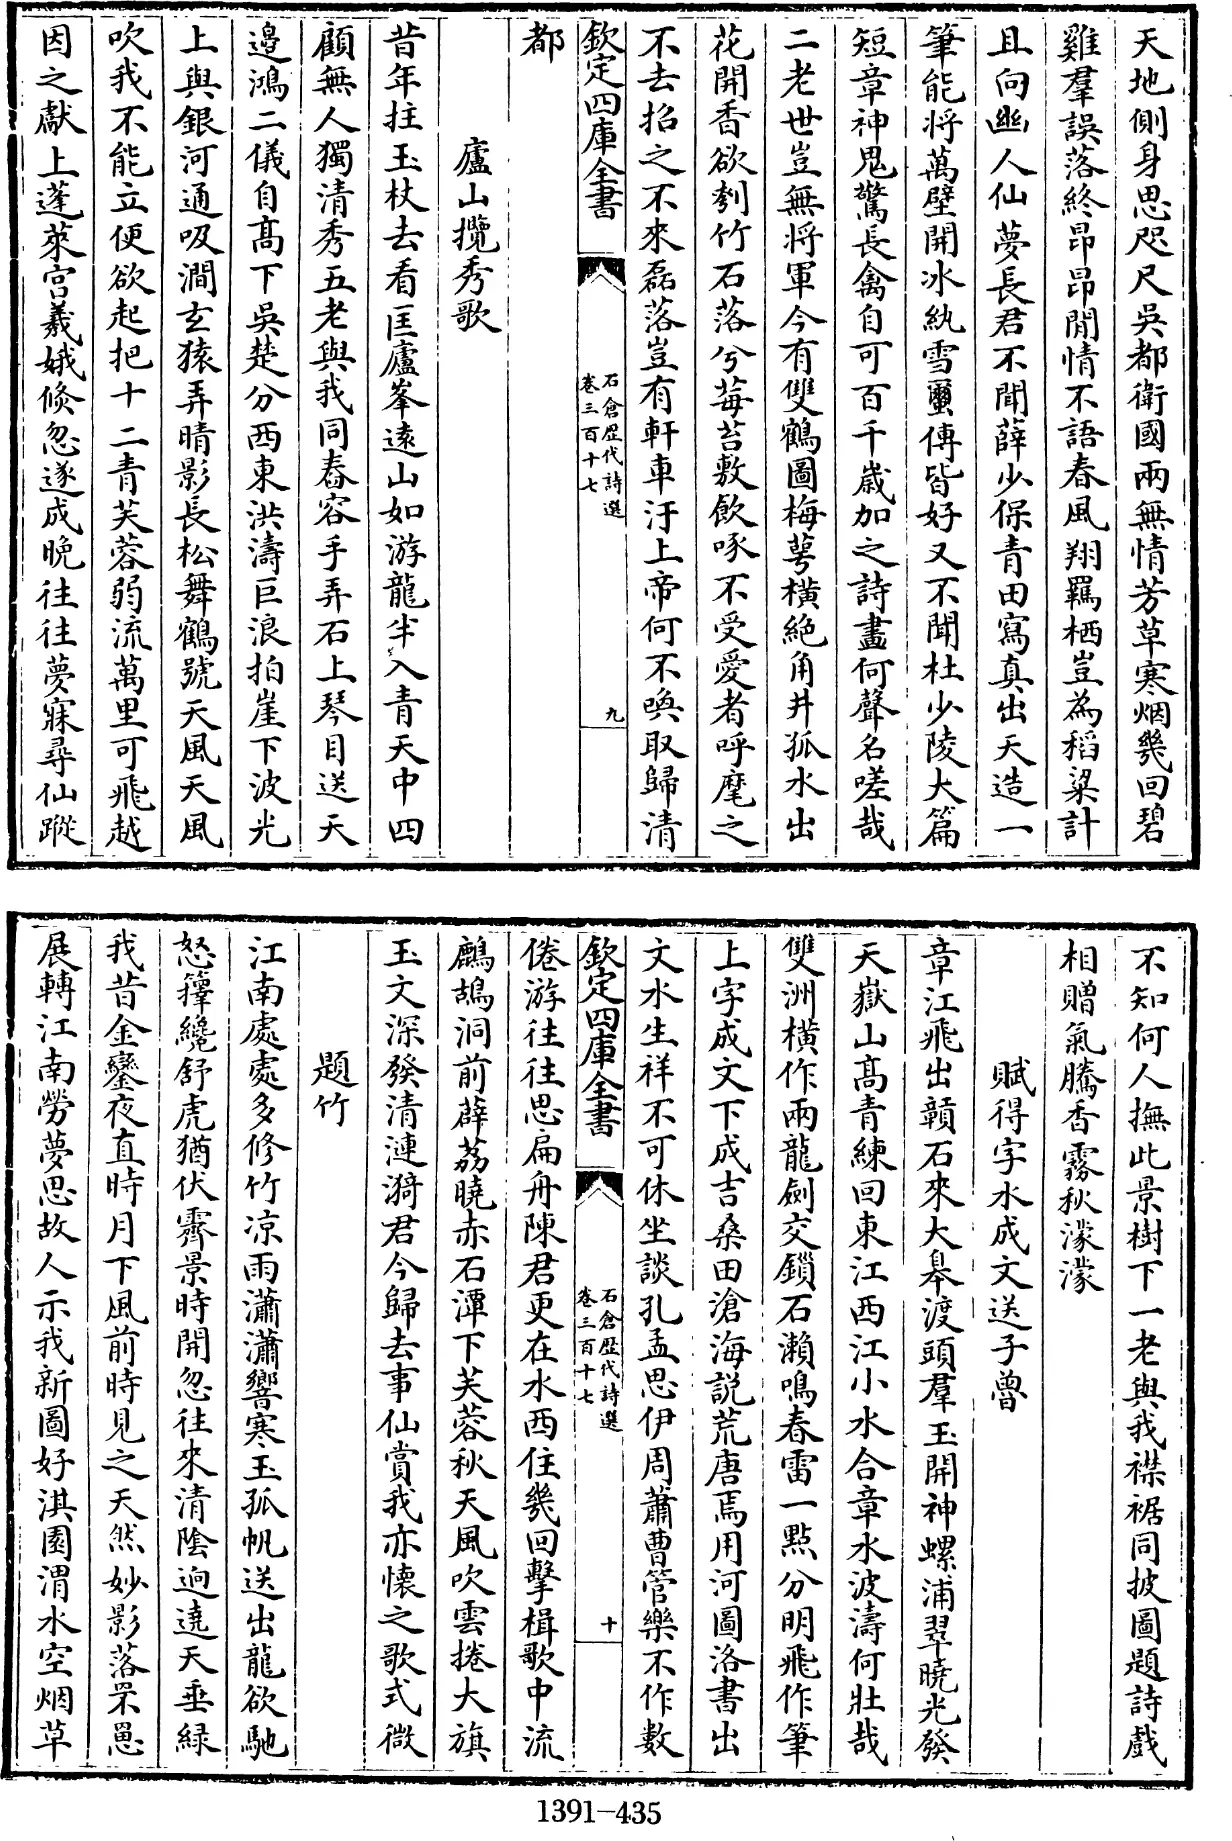 天地側身思咫尺吳都衛國兩無情芳草寒烟幾回碧
雞羣誤落終昂昂閒情不語春風翔羈栖豈為稻粱計
且向幽人仙夢長君不聞薛少保青田寫真出天造一
筆能將萬壁開冰紈雪蠒傳皆好又不聞杜少陵大篇
短章神鬼驚長禽自可百千歲加之詩畫何聲名嗟哉
二老世豈無將軍今有雙鶴圖梅萼橫絶角井孤水出
花開香欲刳竹石落兮莓苔敷飲啄不受愛者呼麾之
不去招之不來磊落豈有軒車汙上帝何不喚取歸清
欽定四庫全書
石倉歴代詩選
卷三百十七
九
都
廬山攬秀歌
昔年拄玉杖去看匡廬峯遠山如游龍半入青天中四
顧無人獨清秀五老與我同舂容手弄石上琴目送天
邉鴻二儀自髙下吳楚分西東洪濤巨浪拍崖下波光
上與銀河通吸澗玄猿弄晴影長松舞鶴號天風天風
吹我不能立便欲起把十二青芙蓉弱流萬里可飛越
因之獻上蓬萊宫羲娥倐忽遂成晚往往夢寐尋仙蹤
不知何人撫此景樹下一老與我襟裾同披圖題詩戲
相贈氣騰香霧秋濛濛
賦得字水成文送子魯
章江飛出贑石來大皋渡頭羣玉開神螺浦翠曉光發
天嶽山髙青練回東江西江小水合章水波濤何壯哉
雙洲橫作兩龍劍交鎖石瀨鳴春雷一㸃分明飛作筆
上字成文下成吉桑田滄海説荒唐焉用河圖洛書出
文水生祥不可休坐談孔孟思伊周蕭曹管樂不作數
欽定四庫全書
石倉歴代詩選
卷三百十七
十
倦游往往思扁舟陳君更在水西住幾回擊楫歌中流
鷓鴣洞前薜荔曉赤石潭下芙蓉秋天風吹雲捲大旗
玉文深發清漣漪君今歸去事仙賞我亦懷之歌式微
題竹
江南處處多修竹凉雨瀟瀟響寒玉孤帆送出龍欲馳
怒籜纔舒虎猶伏霽景時開忽往來清陰迴遶天垂緑
我昔金鑾夜直時月下風前時見之天然妙影落罘罳
展轉江南勞夢思故人示我新圖好淇園渭水空烟草
1391-435